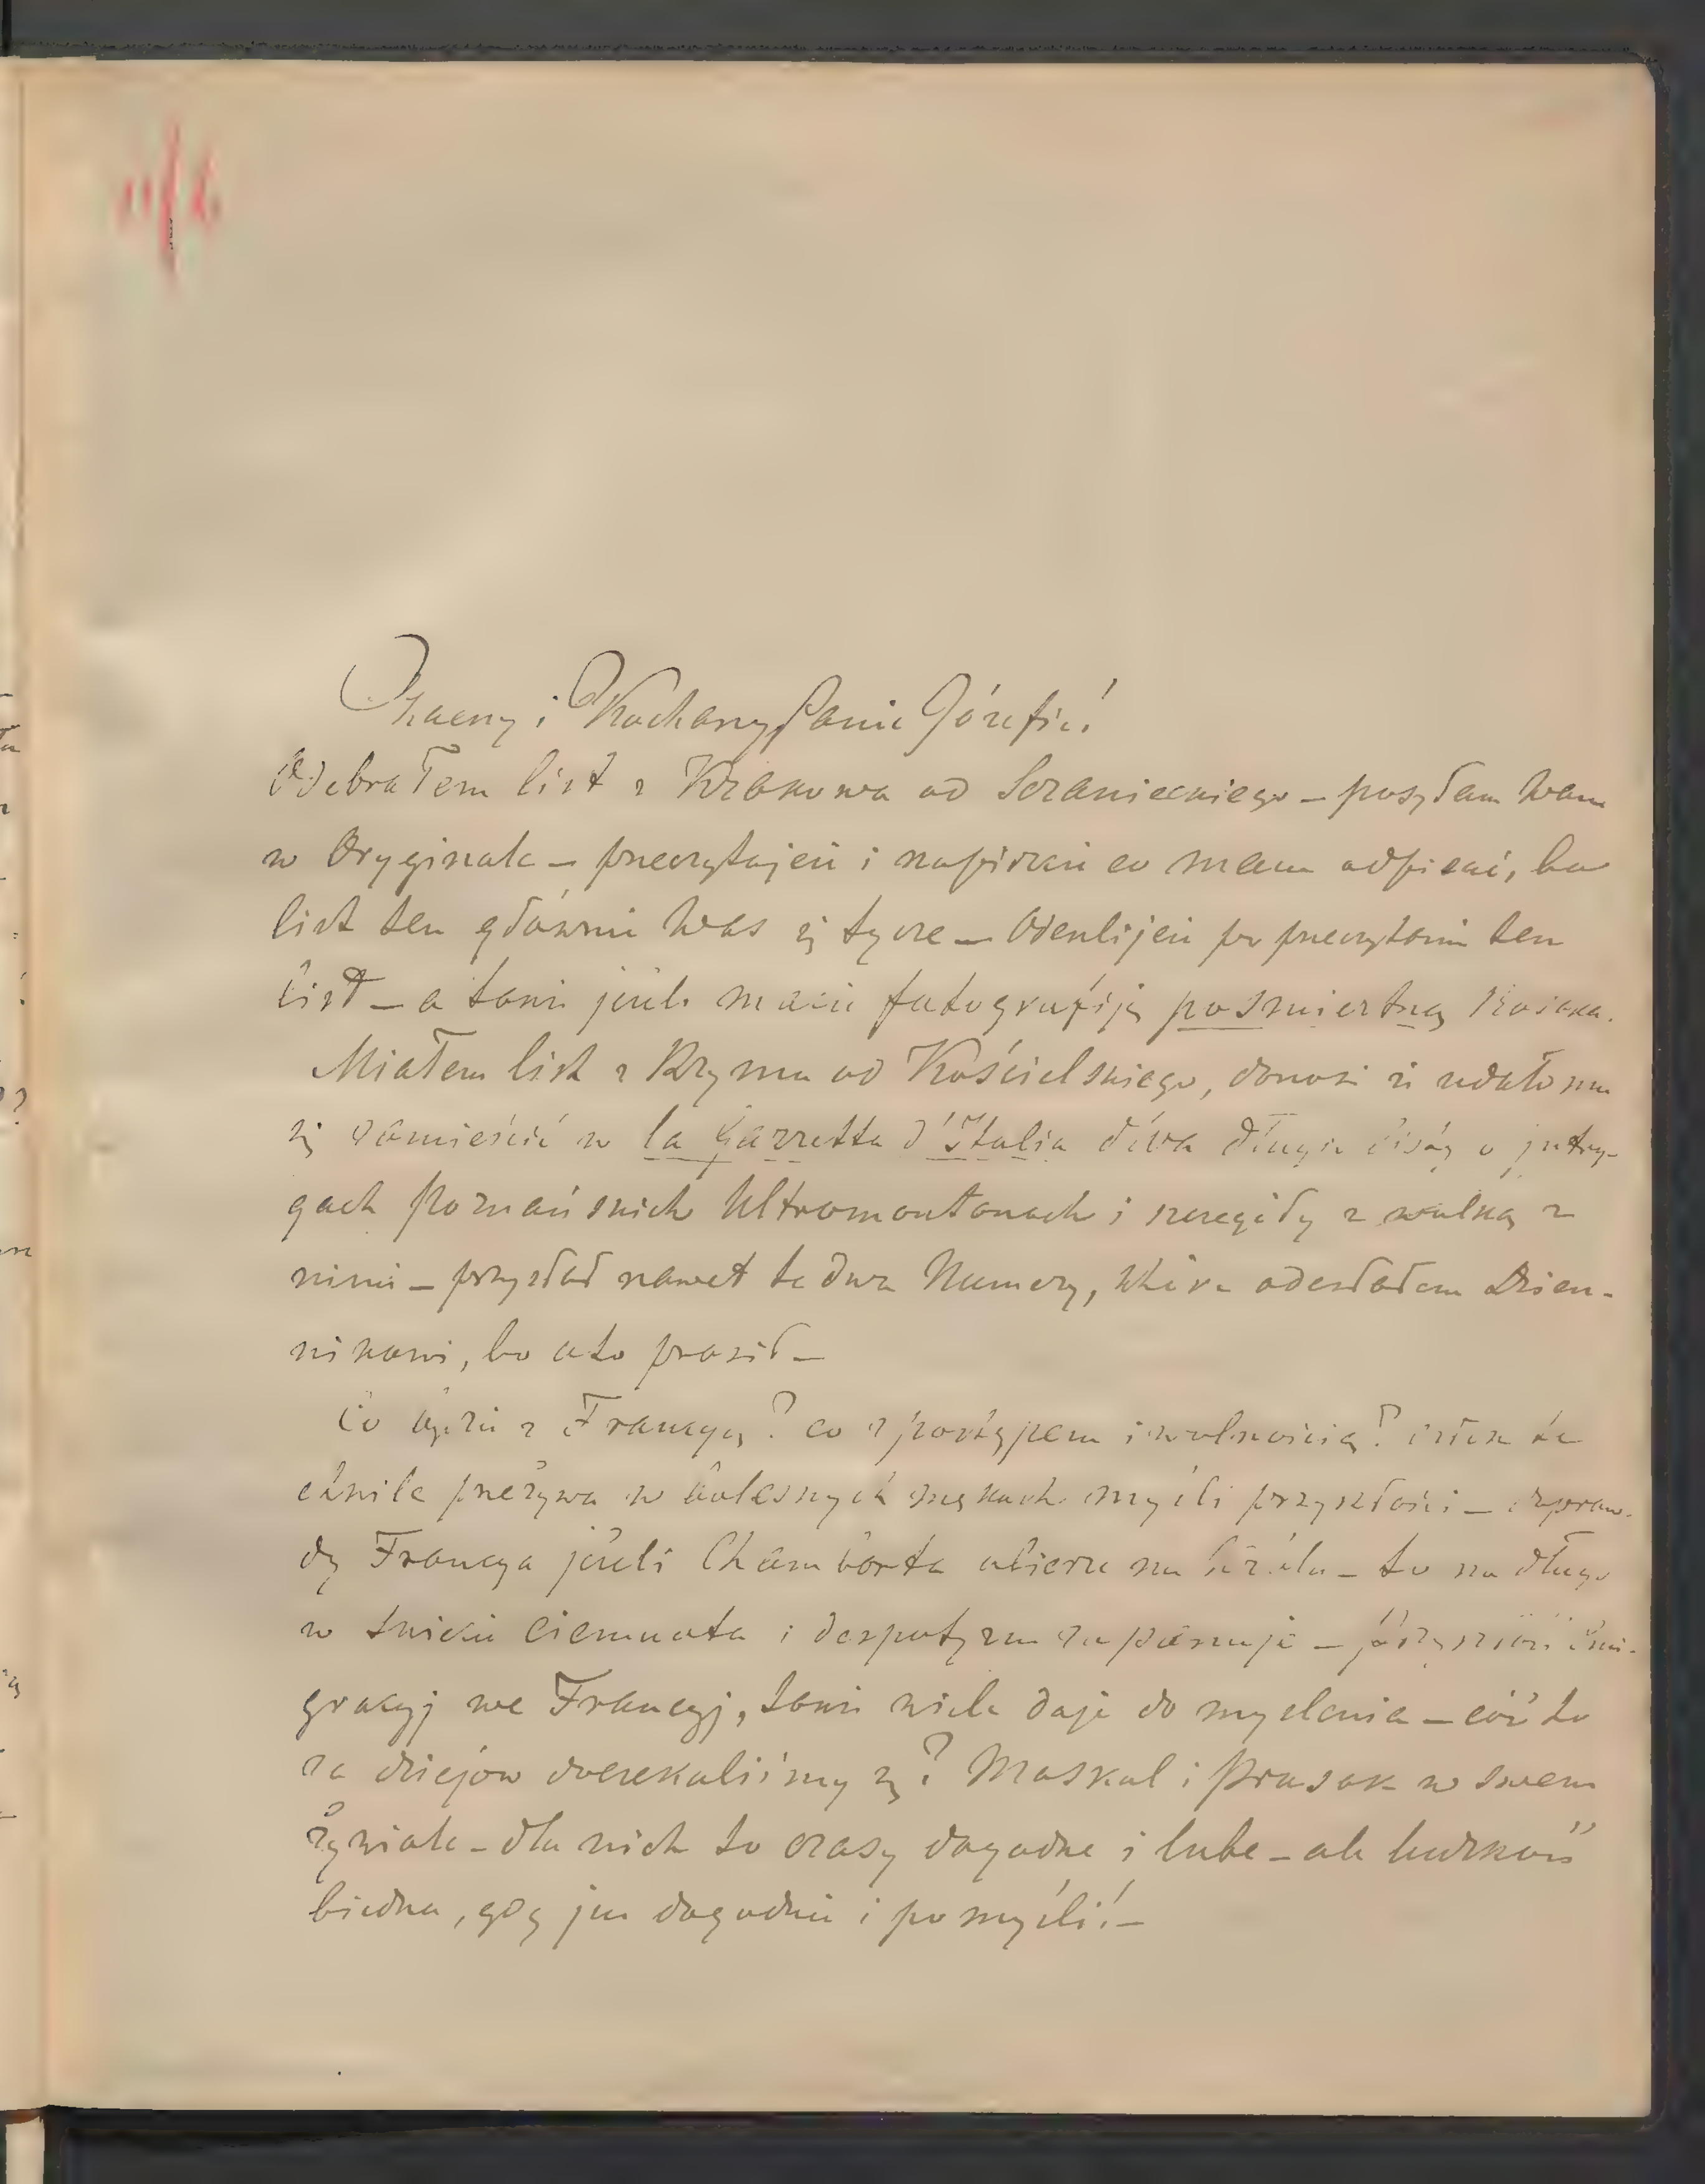 Zacny i Kochany Panie Józefie!
Odebrałem list z Krakowa od Szanieckiego – posyłam Wam
w Oryginale – przeczytajcie i napiszcie co mam odpisać, bo
list ten głównie Was się tycze – Odeślijcie po przeczytaniu ten
list – a toni jeśli macie fotografiję pośmiertną
Miałem list z Rzymu od Kościelskiego, donosi iż udało mu
się zamieścić w la Gazzetta d'Italia dwa długie o intry-
gach Poznańskich Ultramontanach i szczegóły z walką z
nimi – przysłał nawet te dwa Numery, które odesłałem Dzien-
nikowi, bo o to prosił –
Co będzie z Francyą? co z postępem i wolnością? te
chwile przeżywa w bolesnych mękach myśli przyszłości – zapraw-
dę Francya jeśli Chamborda obierze na króla – to na długo
w świecie ciemnota i despotyzm zapanuje – przyszłość Emi-
gracyj we Francyj, toni wiele daje do myślenia – cóż to
za dziejów doczekaliśmy się? Moskal i Prusak w swem
żywiole – dla nich to czasy dogodne i lube – ale ludzkość
biedna, gdy jej dogodnie i pomyśli! –